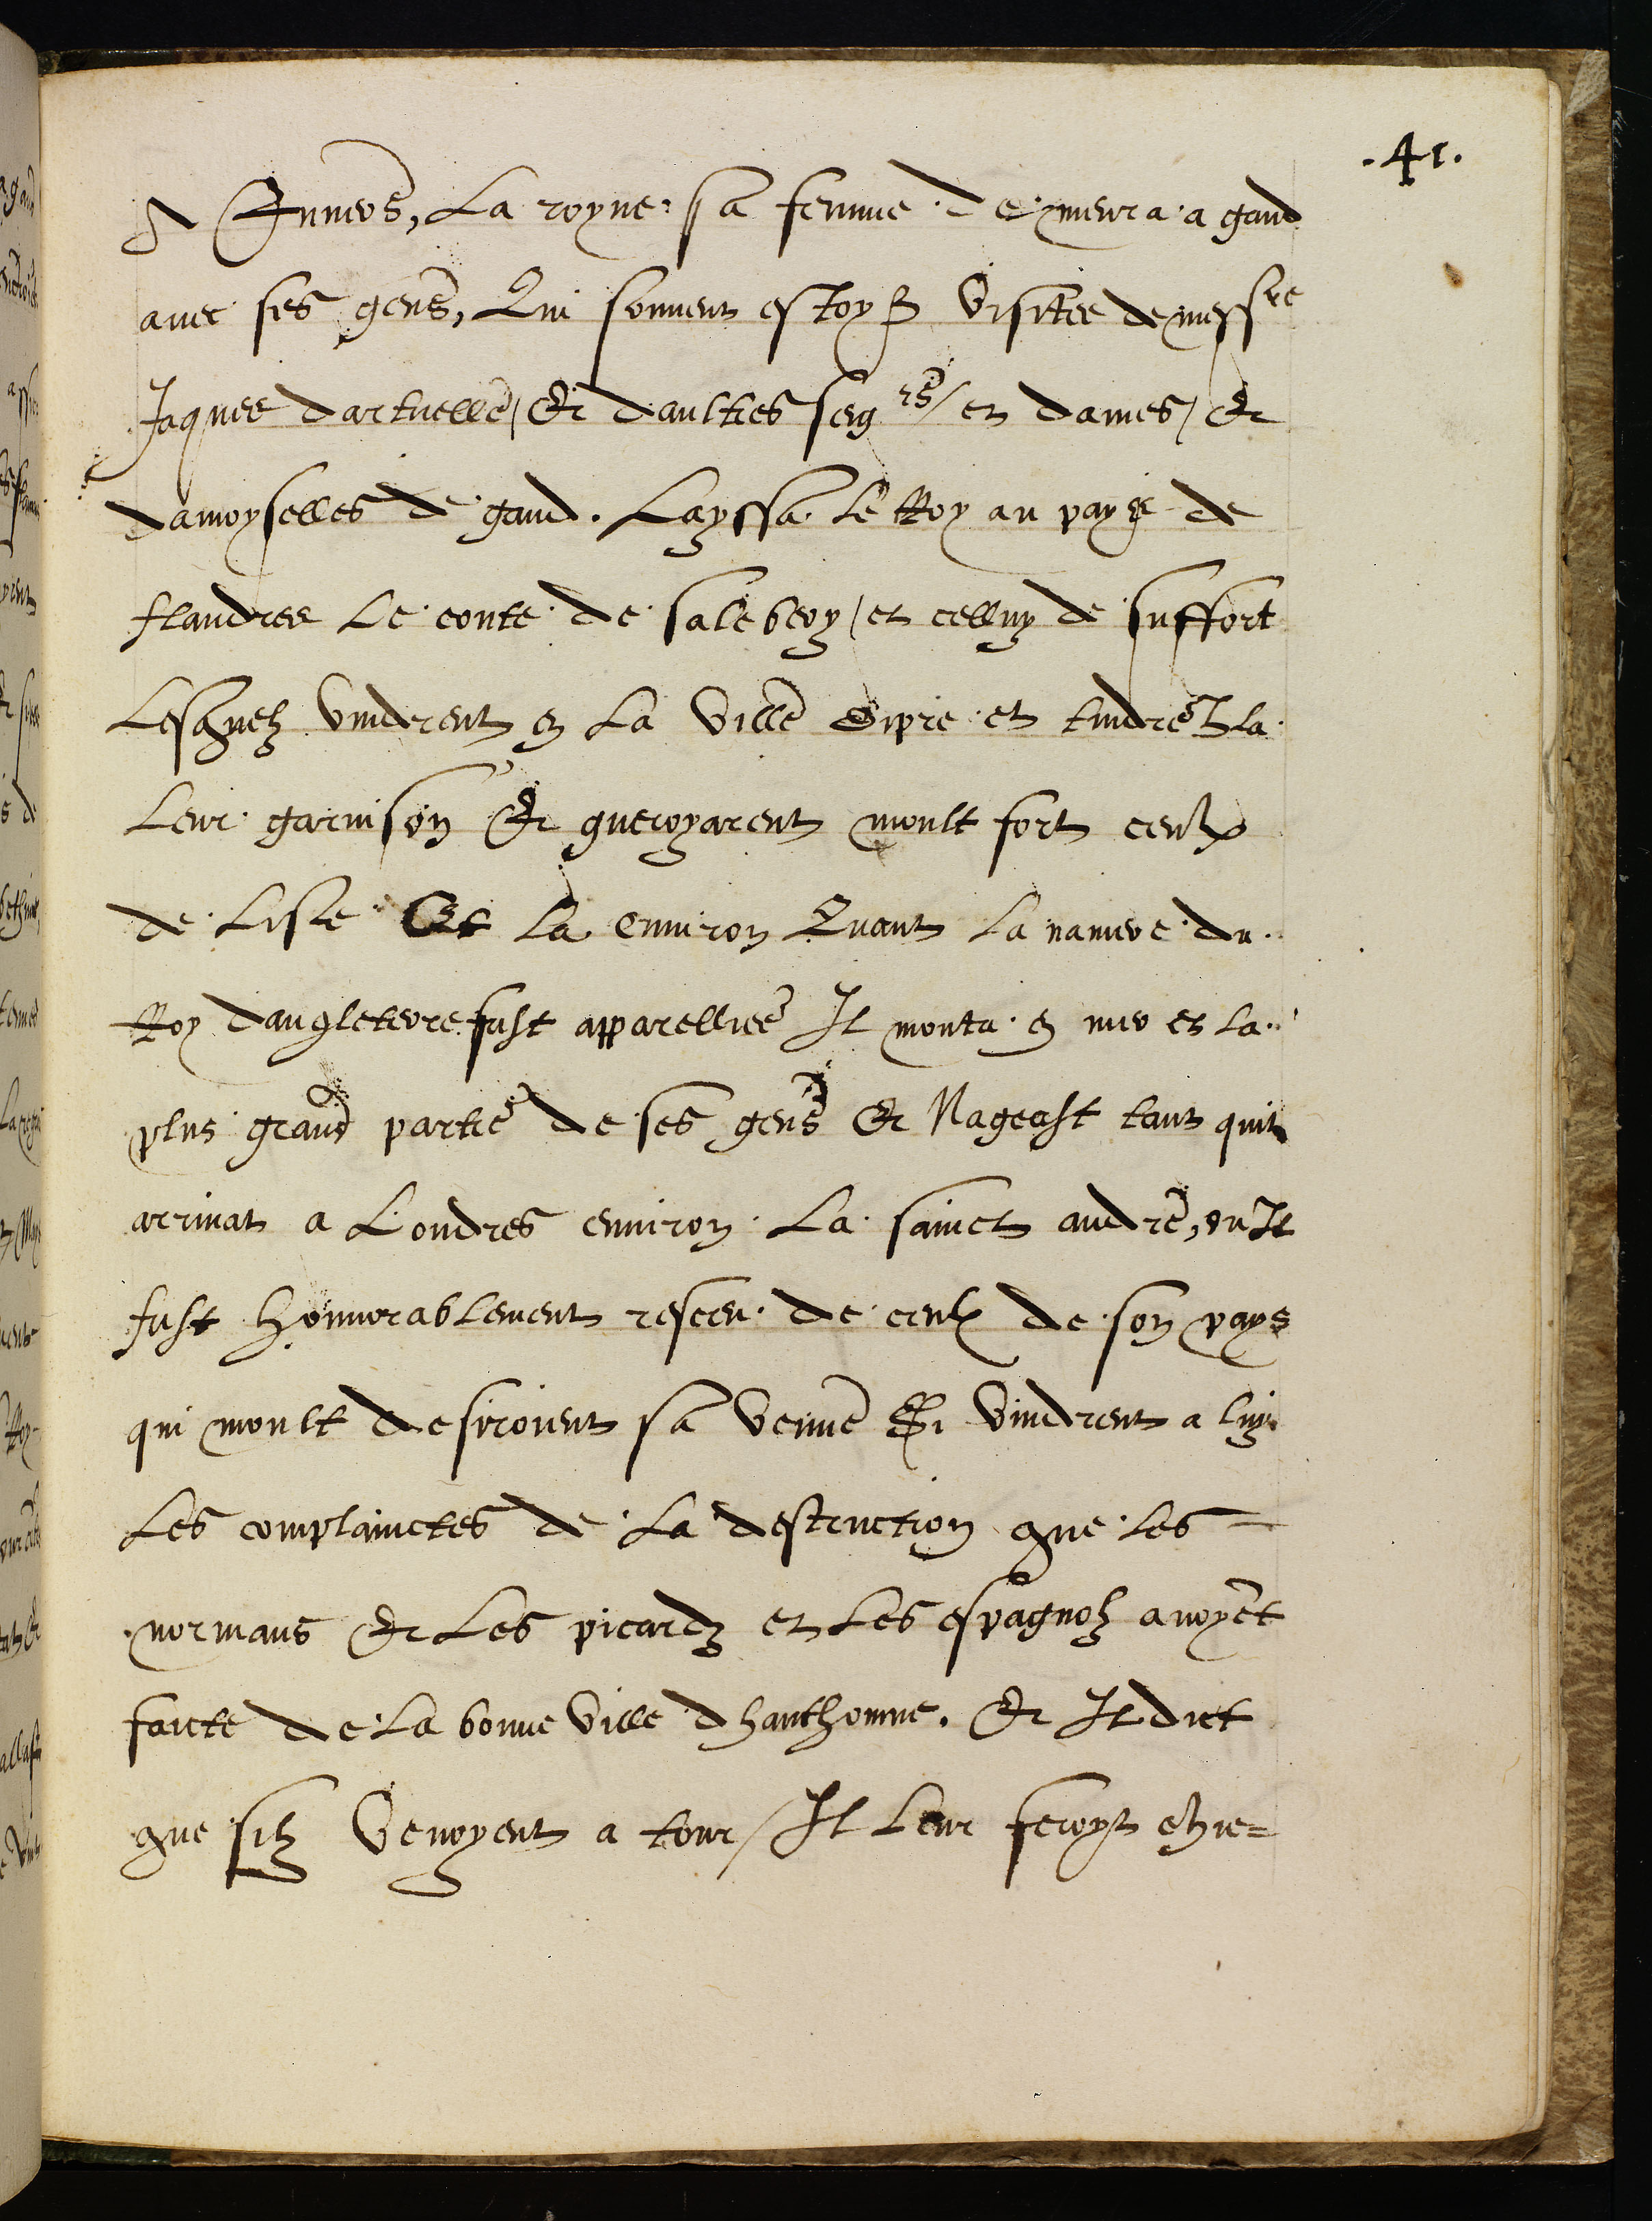 .41.
A Enuers, La royne sa femme demeura a gand
auec ses gens, Qui souuent estoyt Visitee de messre
Jaques dartuelle / Et daultres seigrs / et dames / Et
damoyselles de gand. Layssa le Roy au pays de
flandres Le conte de salebery / et celluy de suffort
Lesquelz vindrent en La Ville dipre et tindrent la
Leur garnison Et gueroyarent moult fort ceulx
de Lisle Et La enuiron Quant La nauire du
Roy dangleterre fust apparelliee Il monta en mer et la
plus grand partie de ses gens Et Nageast tant quil
arriuat a Londres enuiron La sainct andre, ou Il
fust honnorablement resceu de ceulx de son pays
qui moult desiroient sa venue Et Vindrent a luy
Les complainctes de La destruction que les
normans Et Les picardz et Les espagnolz auoyent
faicte de La bonne Ville dhanthonne. Et Il dict
que silz Venoyent a tour / Il Leur feroyt chie=